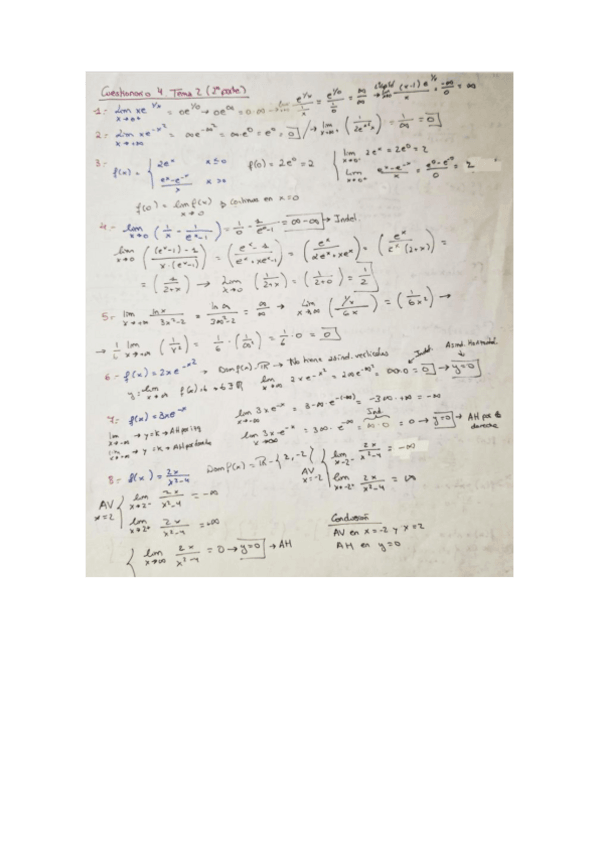 Cuestionario 4 Tema 2 (2ª parte)
1- lim x→0⁺ xe^(1/x) = 0e^(1/0) → 0e^∞ = 0·∞ → lim e^(1/x) / (1/x) = e^(1/0) / (1/0) = ∞/∞
2- lim x→+∞ xe^(-x²) = ∞e^(-∞²) = ∞·e^0 = e^∞ = 0 → lim x→+∞ (1/(2e^(x²)x)) = 1/∞ = 0
3- f(x) = { 2e^x x≤0 f(0) = 2e^0 = 2 { lim x→0⁻ 2e^x = 2e^0 = 2
(e^x-e^-x)/x x>0 lim x→0⁺ (e^x-e^-x)/x = (e^0-e^0)/0 = 2
f(0) = lim x→0 f(x) continua en x=0
4- lim x→0 (1/x - 1/(e^x-1)) = 1/0 - 1/(e^x-1) = ∞-∞ → Indet.
lim x→0 (((e^x-1)-x)/(x·(e^x-1))) = ((e^x-1)/(e^x+xe^x-1)) = (e^x/(2e^x+xe^x)) = (e^x/(e^x(2+x))) =
= (1/(2+x)) → lim x→0 (1/(2+x)) = (1/(2+0)) = 1/2
5- lim x→+∞ lnx/(3x²-2) = ln∞/(3∞²-2) = ∞/∞ → lim x→∞ ((1/x)/6x) = (1/6x²) →
→ 1/6 lim x→+∞ (1/x²) = 1/6·(1/∞²) = 1/6·0 = 0
6- f(x) = 2xe^(-x²) → Dom f(x) = ℝ → No tiene asínt. verticales Indet. Asínt. Horizontal
lim x→∞ 2xe^(-x²) = 2∞e^(-∞)² = ∞·0 = 0 → y=0
7- f(x) = 3xe^-x lim x→-∞ 3xe^-x = 3·-∞·e^-(-∞) = -3∞·+∞ = -∞
Ind
lim x→-∞ → y=k → AH por izq lim x→∞ 3x·e^-x = 3∞·e^-∞ = ∞·0 = 0 → y=0 → AH por la derecha
8- f(x) = 2x/(x²-4) Dom f(x) = ℝ - {2,-2} AV x=-2 { lim x→-2⁻ 2x/(x²-4) = -∞
lim x→-2⁺ 2x/(x²-4) = ∞
AV x=2 { lim x→2⁻ 2x/(x²-4) = -∞
lim x→2⁺ 2x/(x²-4) = +∞
{ lim x→∞ 2x/(x²-4) = 0 → y=0 → AH
Conclusión
AV en x=-2 y x=2
AH en y=0